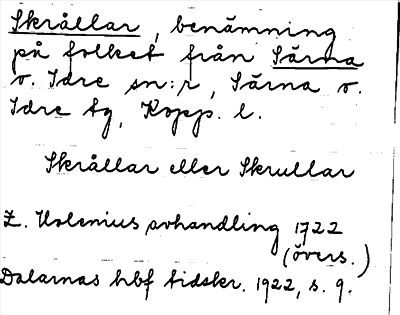 Skrållar, benämning
på folket från Särna
o. Idre sn:r, Särna o.
Idre tg, Kopp. l.
Skrållar eller Skrullar
Z. Holenius avhandling 1722
(övers.)
Dalarnas hbf tidskr. 1922, s. 9.